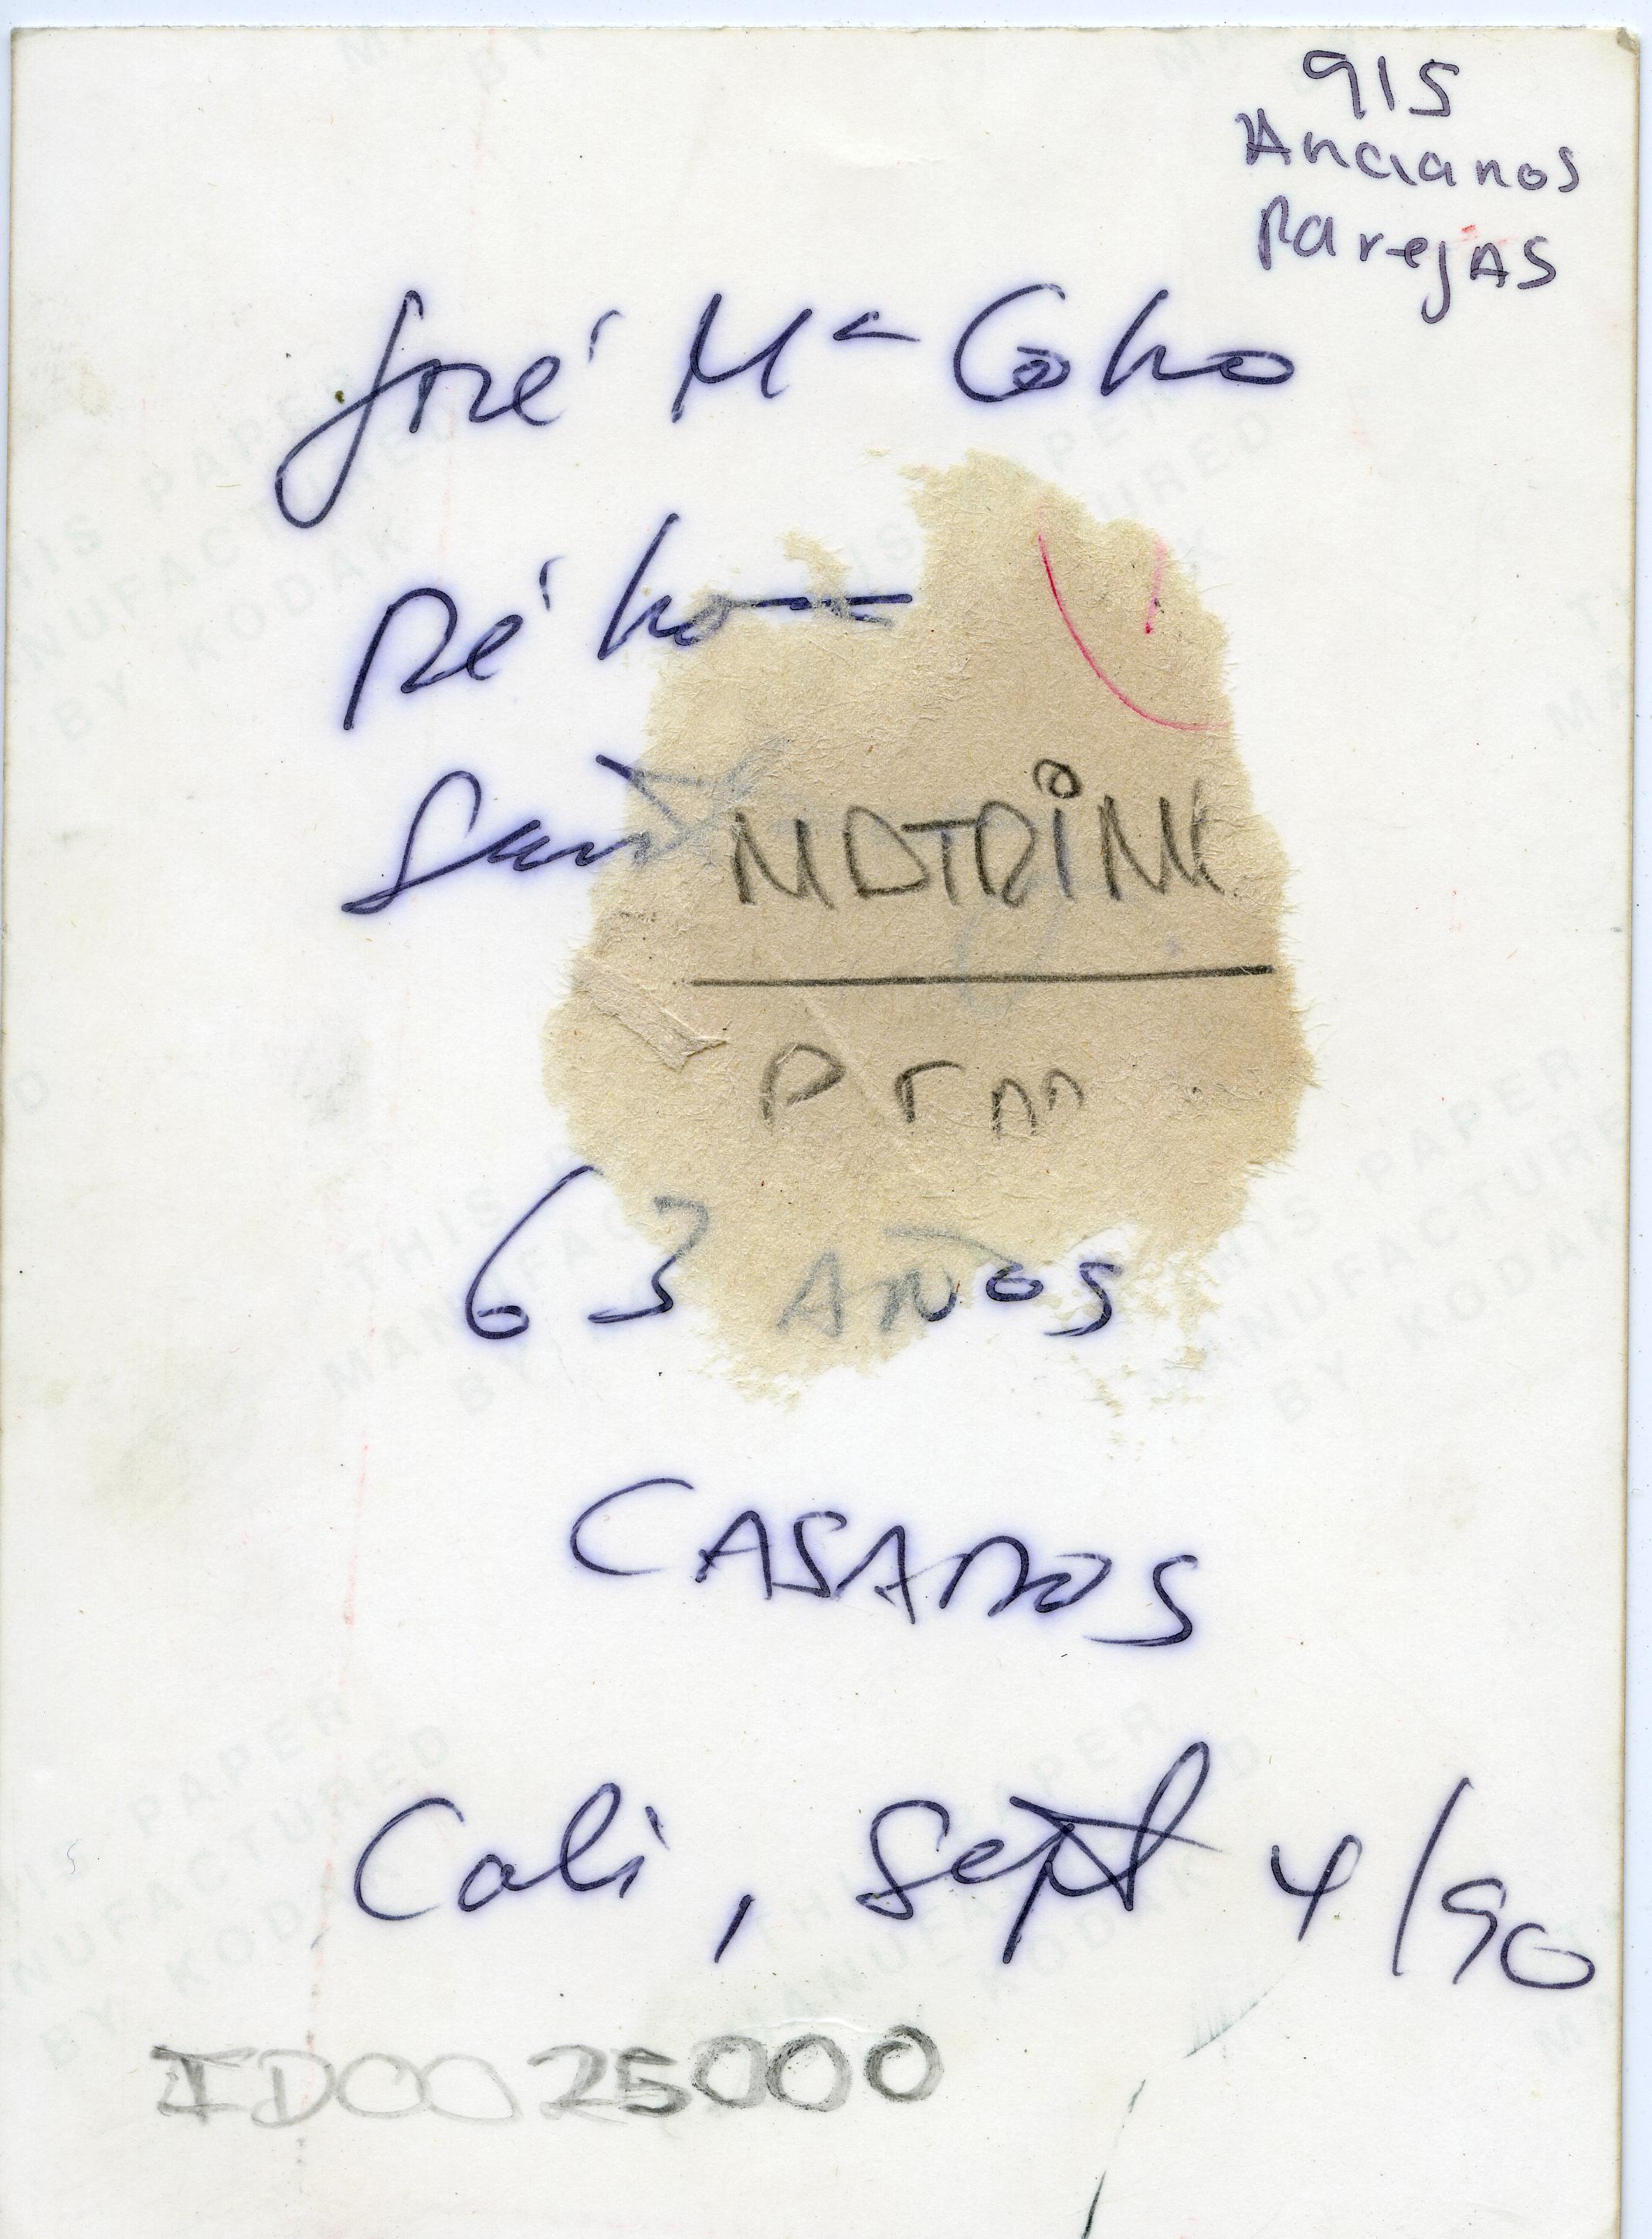 915
Ancianos
Parejas
José Mª Cobo
63 AÑOS
CASADOS
Cali, Sept 4/90
ID0025000
THIS PAPER
MANUFACTURED
BY KODAK